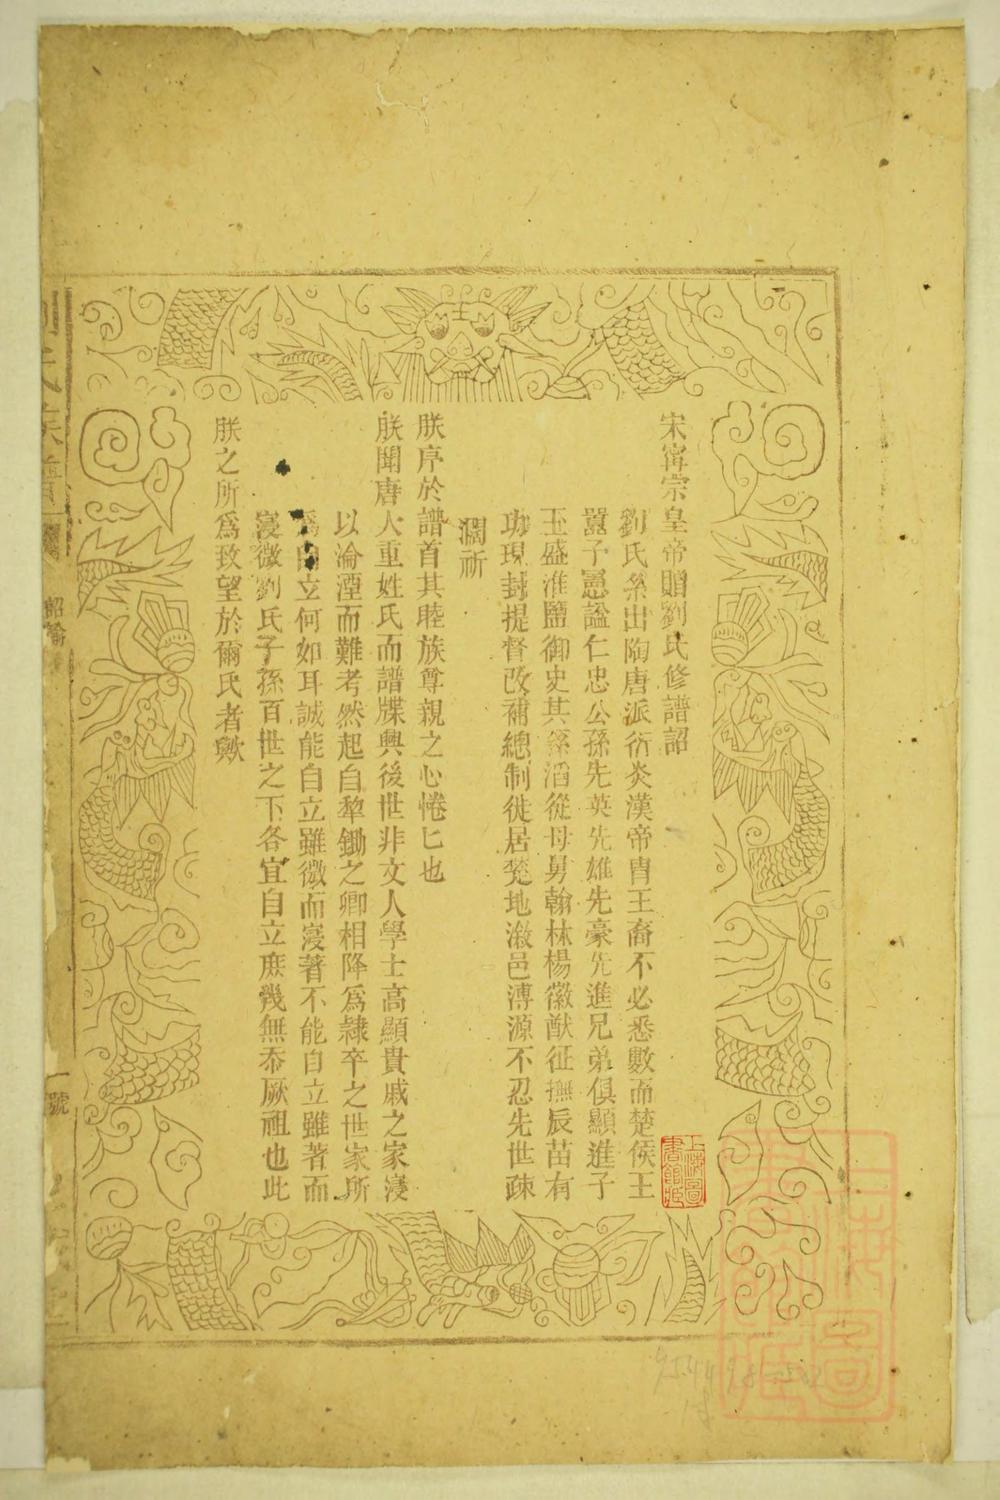 宋甯宗皇帝贈劉氏修譜詔
劉氏系出陶唐派衍炎漢帝胄王裔不必悉數而楚侯王
囂子憲謚仁忠公孫先英先雄先豪先進兄弟俱顯進子
玉盛淮鹽御史其孫滔從母舅翰林楊徽猷征撫辰苗有
功現封提督改補總制徙居梵地溆邑溥源不忍先世疎
濶祈
朕序於譜首其睦族尊親之心惓匕也
朕聞唐人重姓氏而譜牒興後世非文人學士高顯貴戚之家寖
以淪湮而難考然起自犂鋤之卿相降爲隷卒之世家所
爲自立何如耳誠能自立雖微而寖著不能自立雖著而
寖微劉氏子孫百世之下各宜自立庶幾無忝厥祖也此
朕之所爲致望於爾氏者歟
氏族譜
詔諭
一號
上海圖書館藏
上海圖書館藏